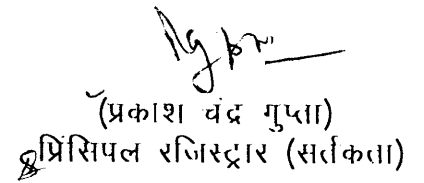 (प्रकाश चंद्र गुप्ता)
प्रिंसिपल रजिस्ट्रार (सर्तकता)